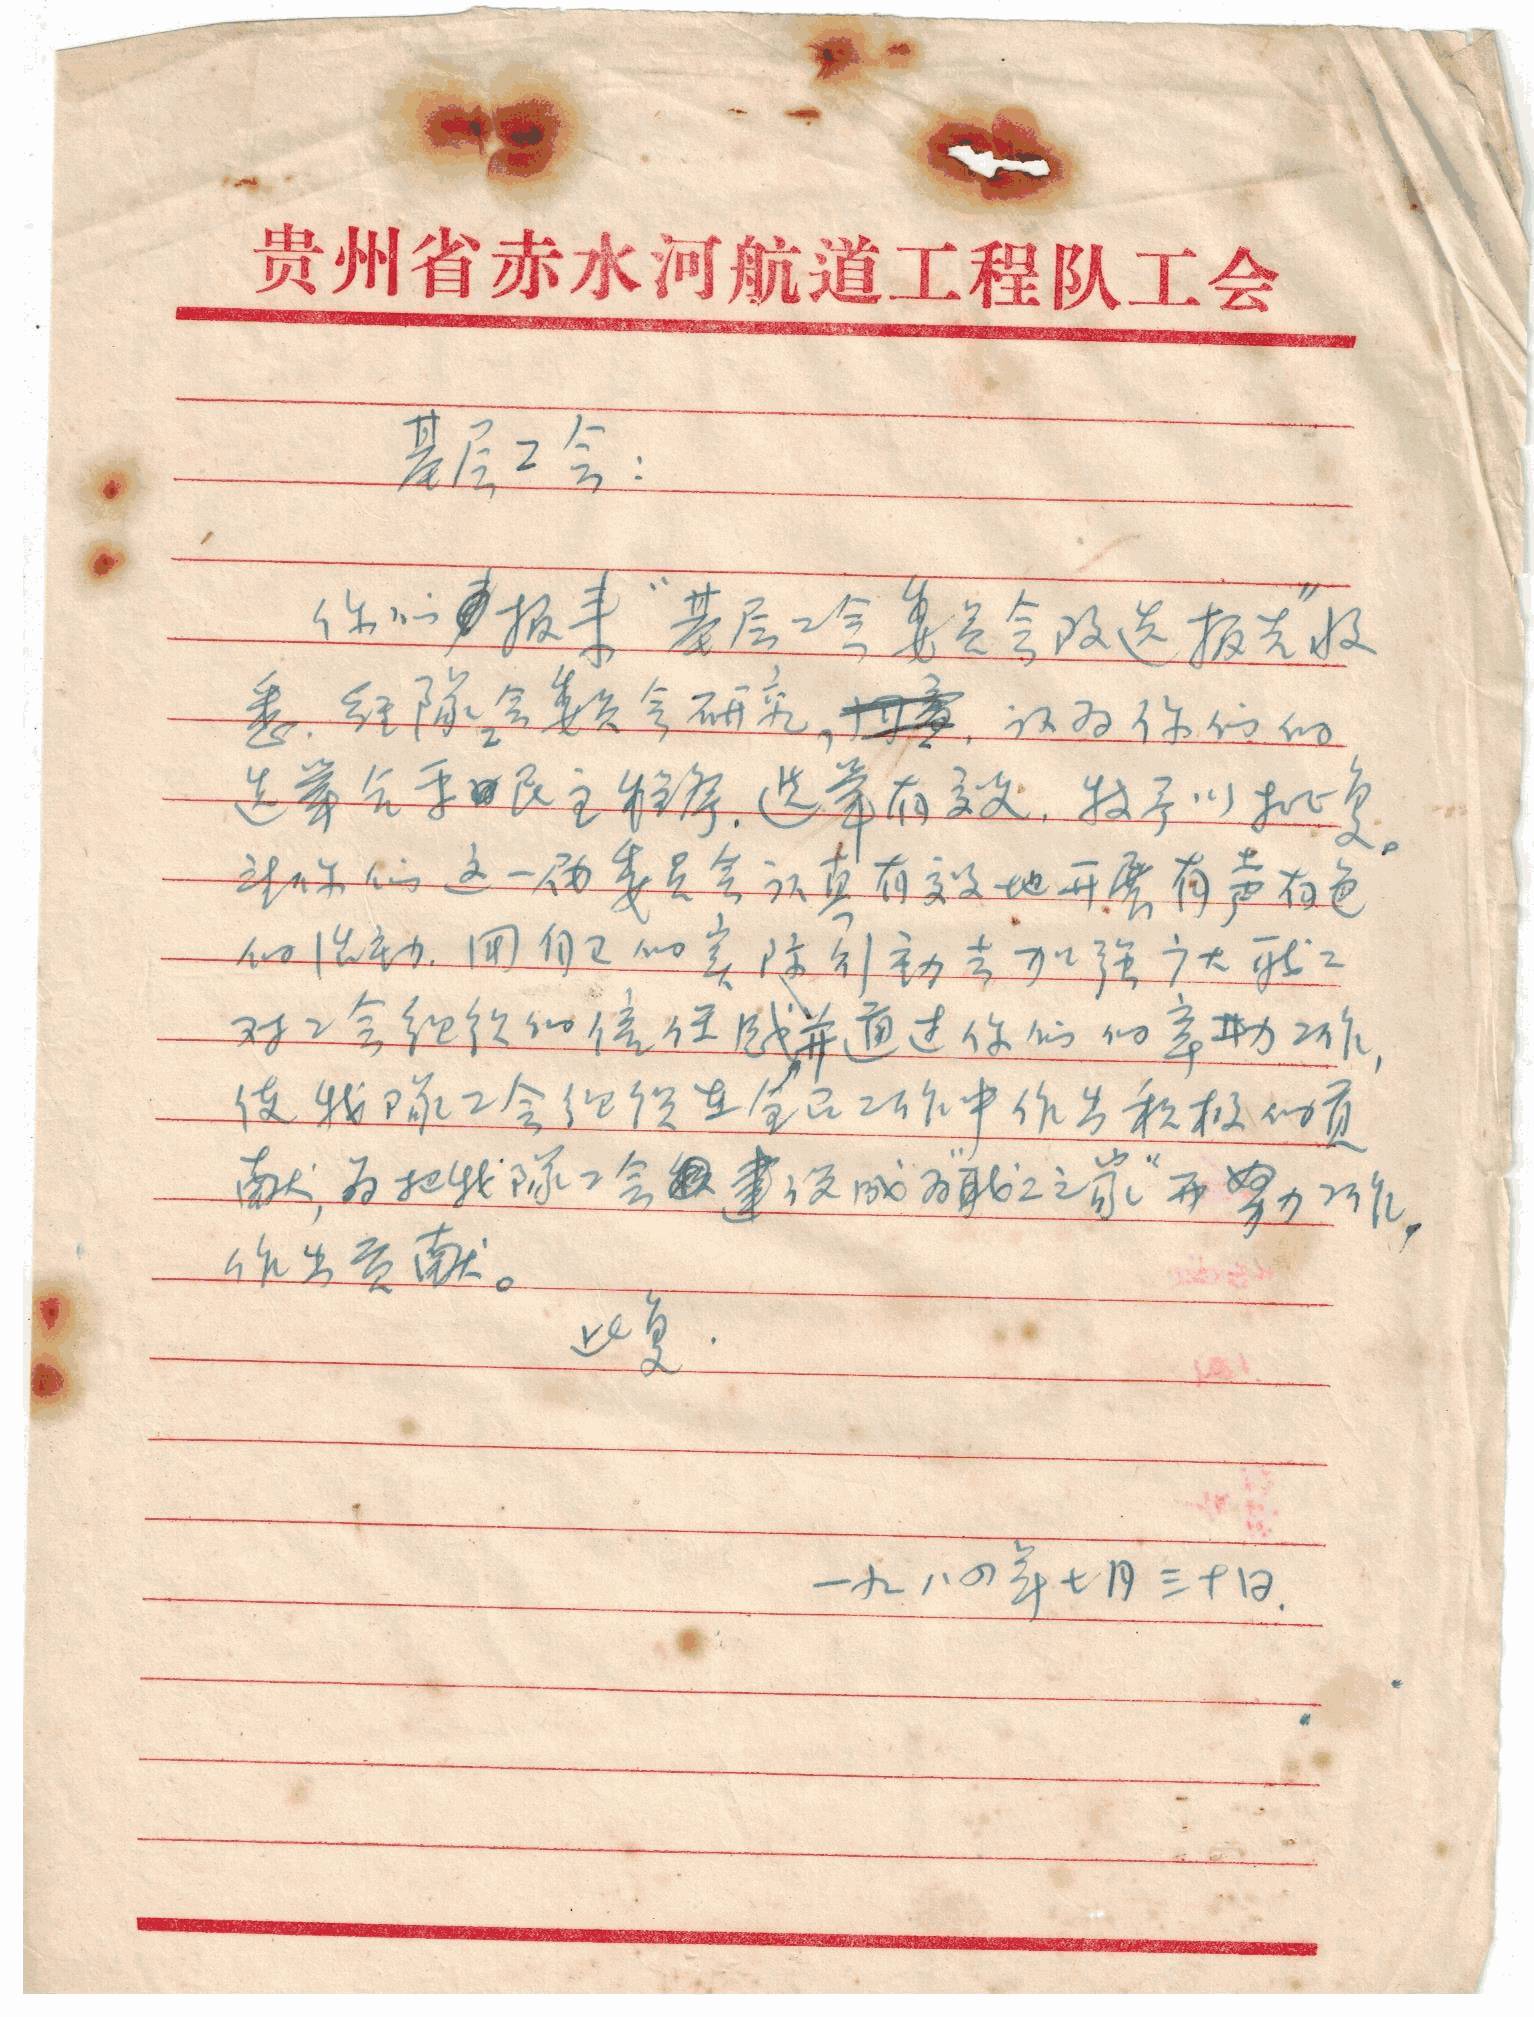 贵州省赤水河航道工程队工会
基层工会:
你们报来“基层工会委员会改选报告”收
悉.经队工会委员会研究,认为你们的
选举合乎民主程序.选举有效.特予以批复。
望你们这一届委员会认真有效地开展有声有色
的活动.用自己的实际行动去加强广大职工
对工会组织的信任感,并通过你们的辛勤工作,
使我队工会组织在全局工作中作出积极的贡
献,为把我队工会建设成为“职工之家”而努力工作,
作出贡献。
此复.
一九八四年七月三十日.